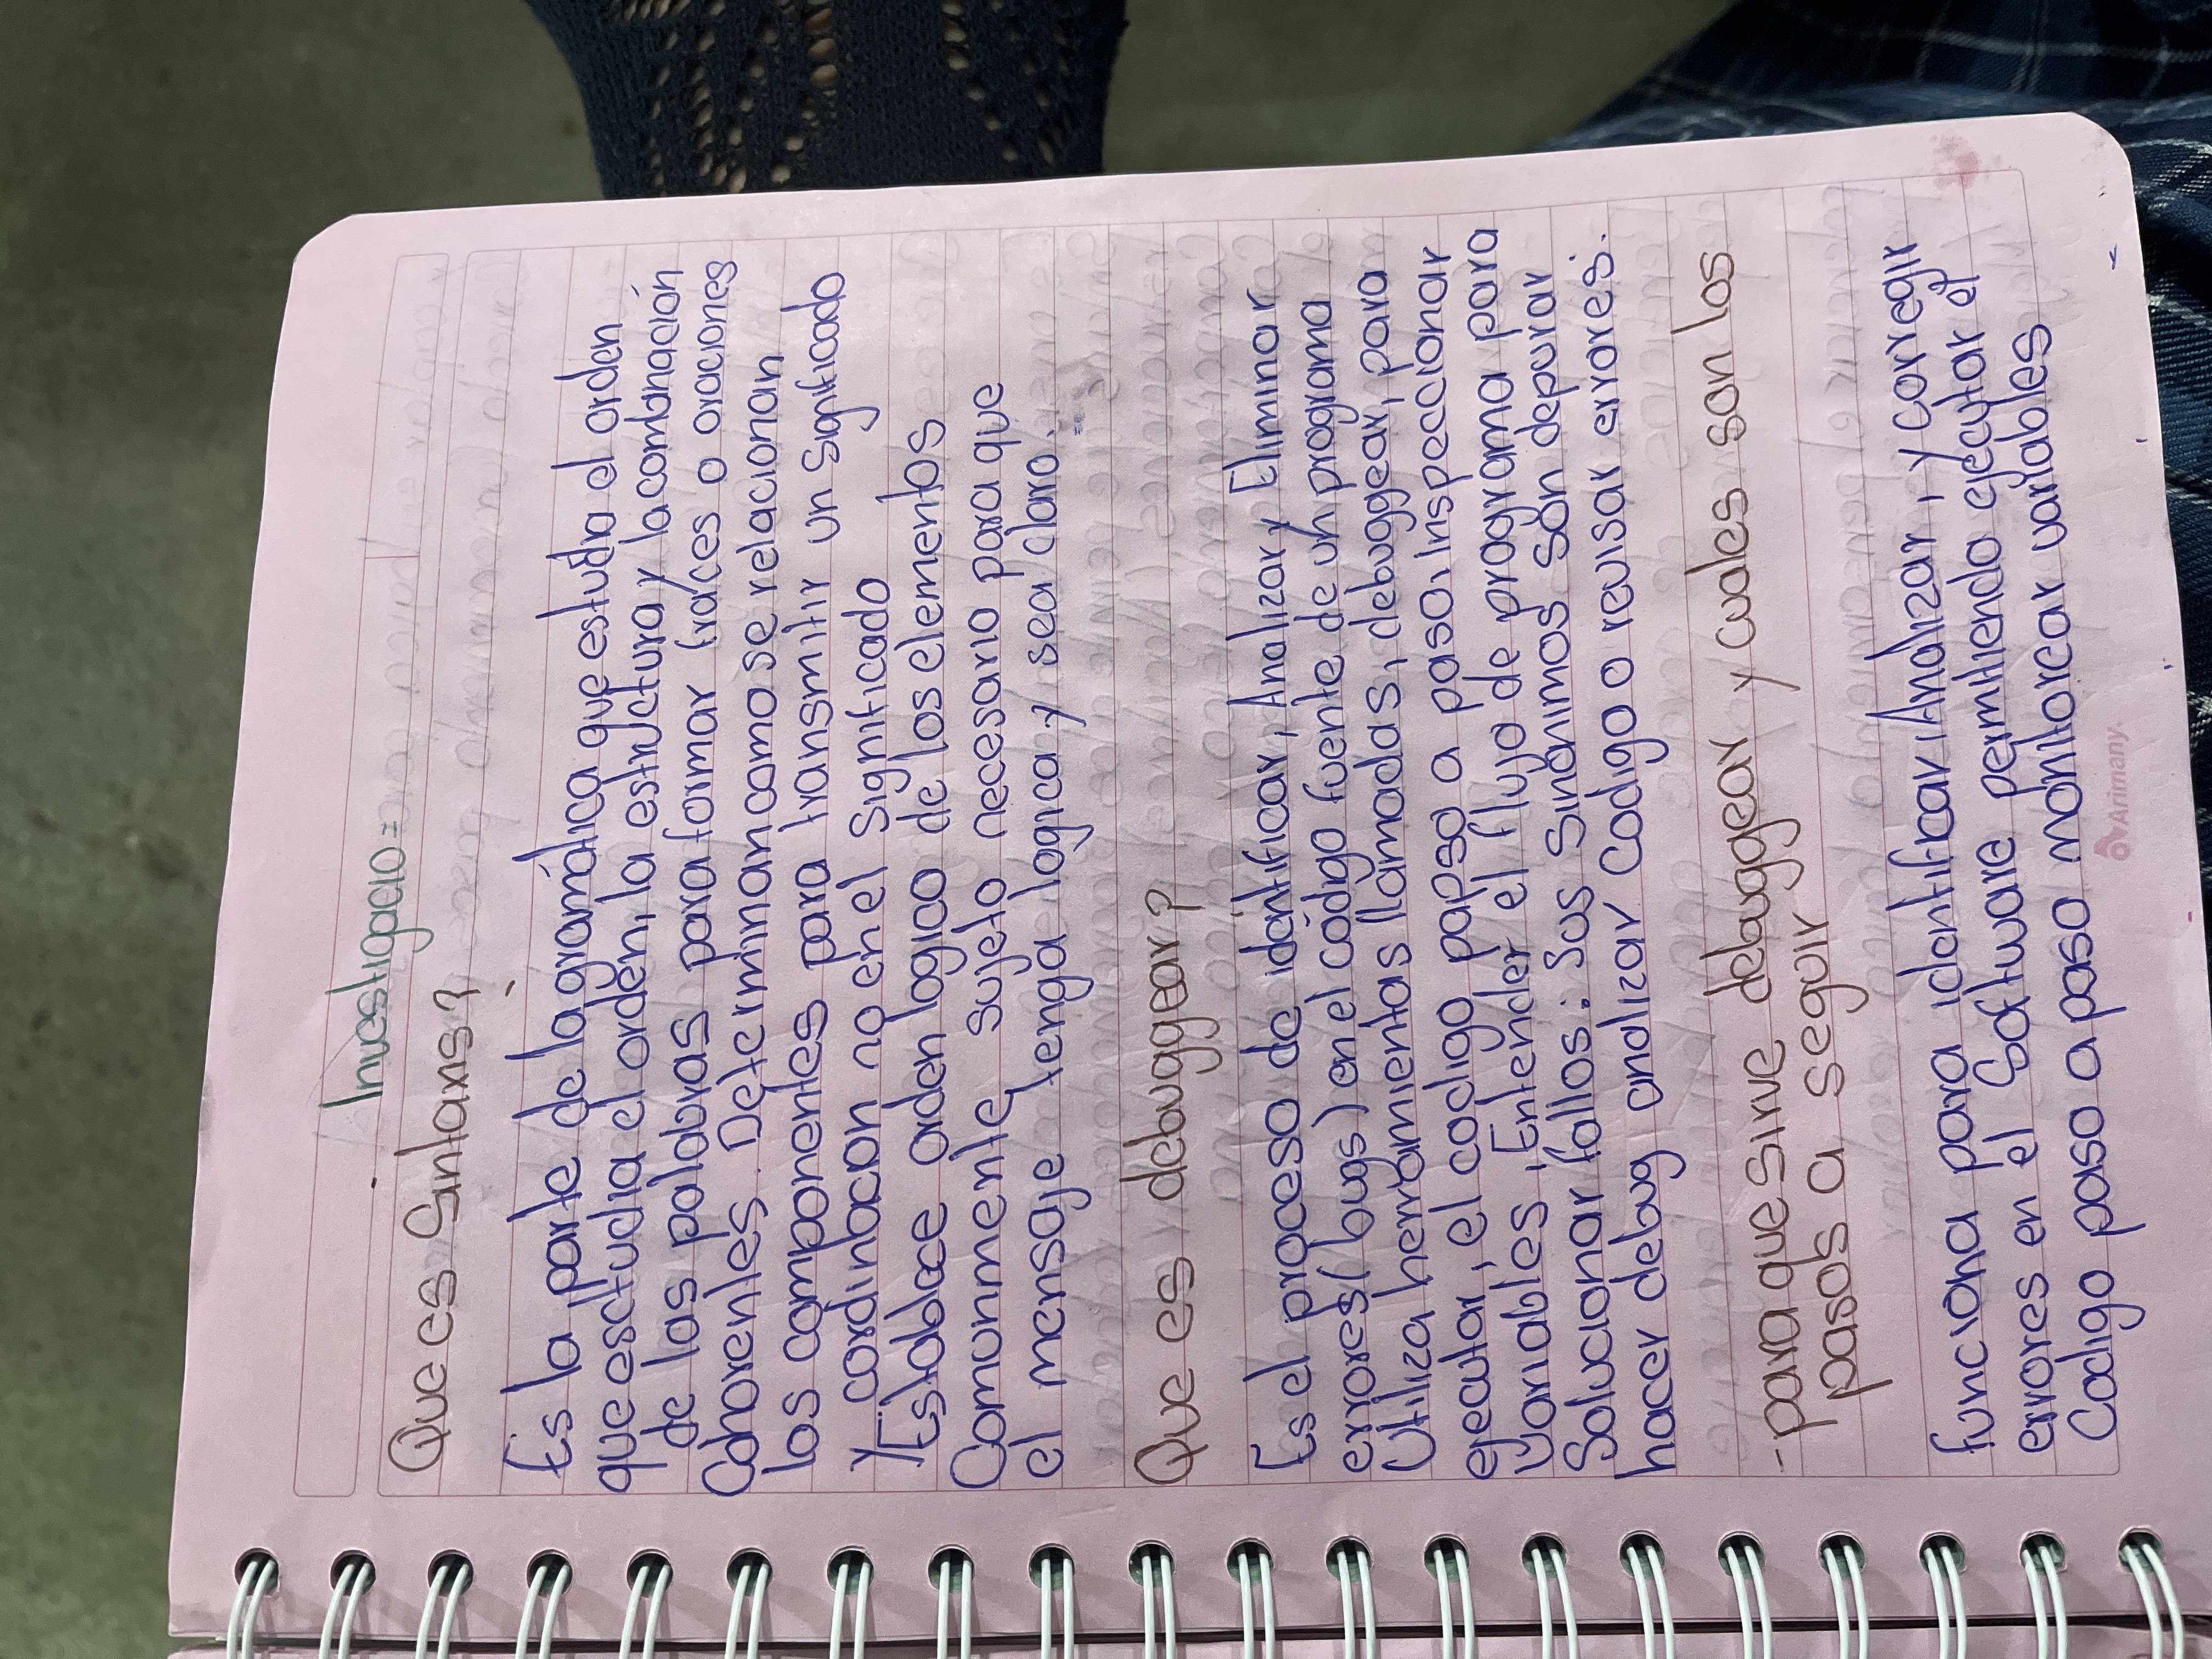 Investigacio=
Que es Sintaxis?
Es la parte de la gramática que estudia el orden
que esctudia el orden, la estructura y la combinación
de las palabras para formar frases o oraciones
Cohorentes. Determinan como se relacionan
los componentes para transmitir un significado
y cordinacion no en el significado
y Establece orden logico de los elementos
Comunmente sujeto necesario para que
el mensaje tenga logica y sea claro.
Que es debuggear?
Es el proceso de identificar, Analizar y Eliminar
errores (bugs) en el código fuente de un programa
Utiliza herramientas llamadas, debuggear, para
ejecutar, el codigo papso a paso, Inspeccionar
Variables, Entender el flujo de programa para
Solucionar fallos: Sus Sinónimos son depurar
hacer debug analizar codigo o revisar errores.
- para que sirve debuggear y cuales son los
pasos a seguir
funciona para identificar, Analizar, y corregir
errores en el Software permitiendo ejecutar el
Codigo paso a paso monitorear variables
Arimany.